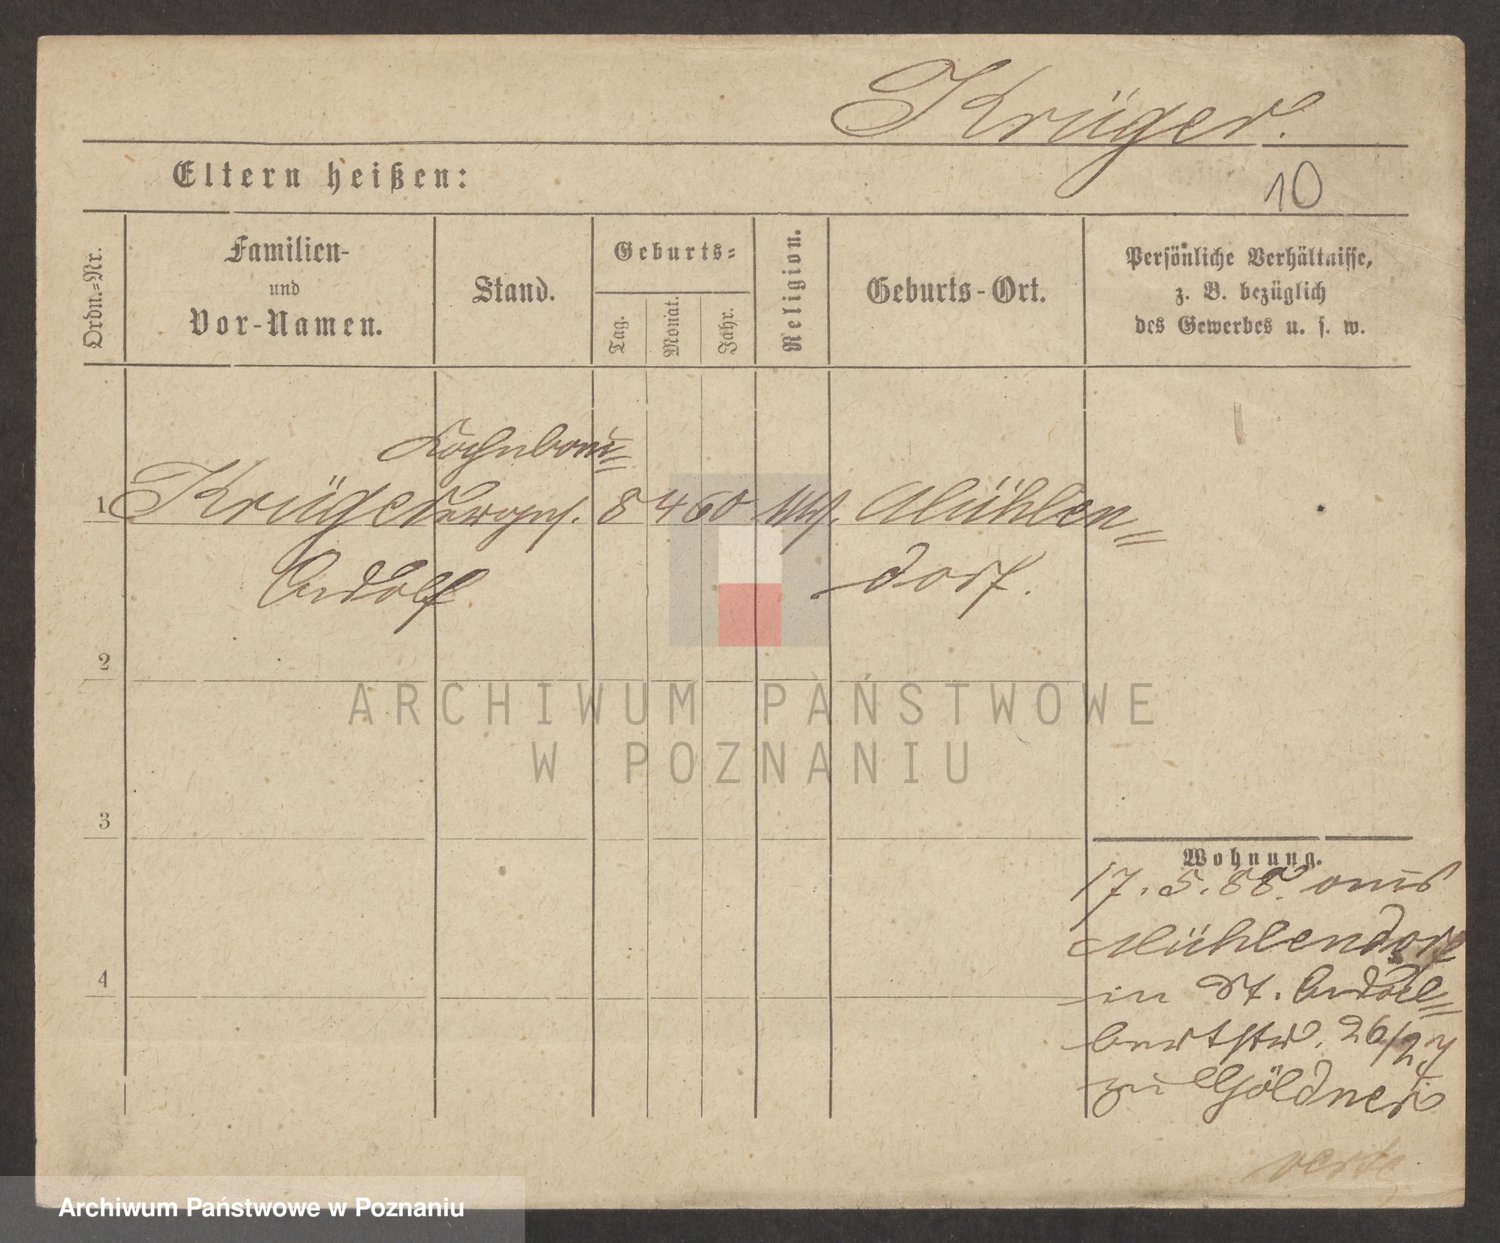 Krüger.
Eltern heißen:
10
Ordn.-Nr.
Familien-
und
Vor-Namen.
Stand.
Geburts-
Tag.
Monat.
Jahr.
Religion.
Geburts-Ort.
Persönliche Verhältnisse,
z. B. bezüglich
des Gewerbes u. s. w.
1 Krüger 8 4 60 Mühlen-
Adolf dorf.
2
3
4
Wohnung.
17. 5. 88. aus
Mühlendorf
in St. Adal-
bertstr. 26/27
zu Göldner
verte
ARCHIWUM PAŃSTWOWE
W POZNANIU
Archiwum Państwowe w Poznaniu